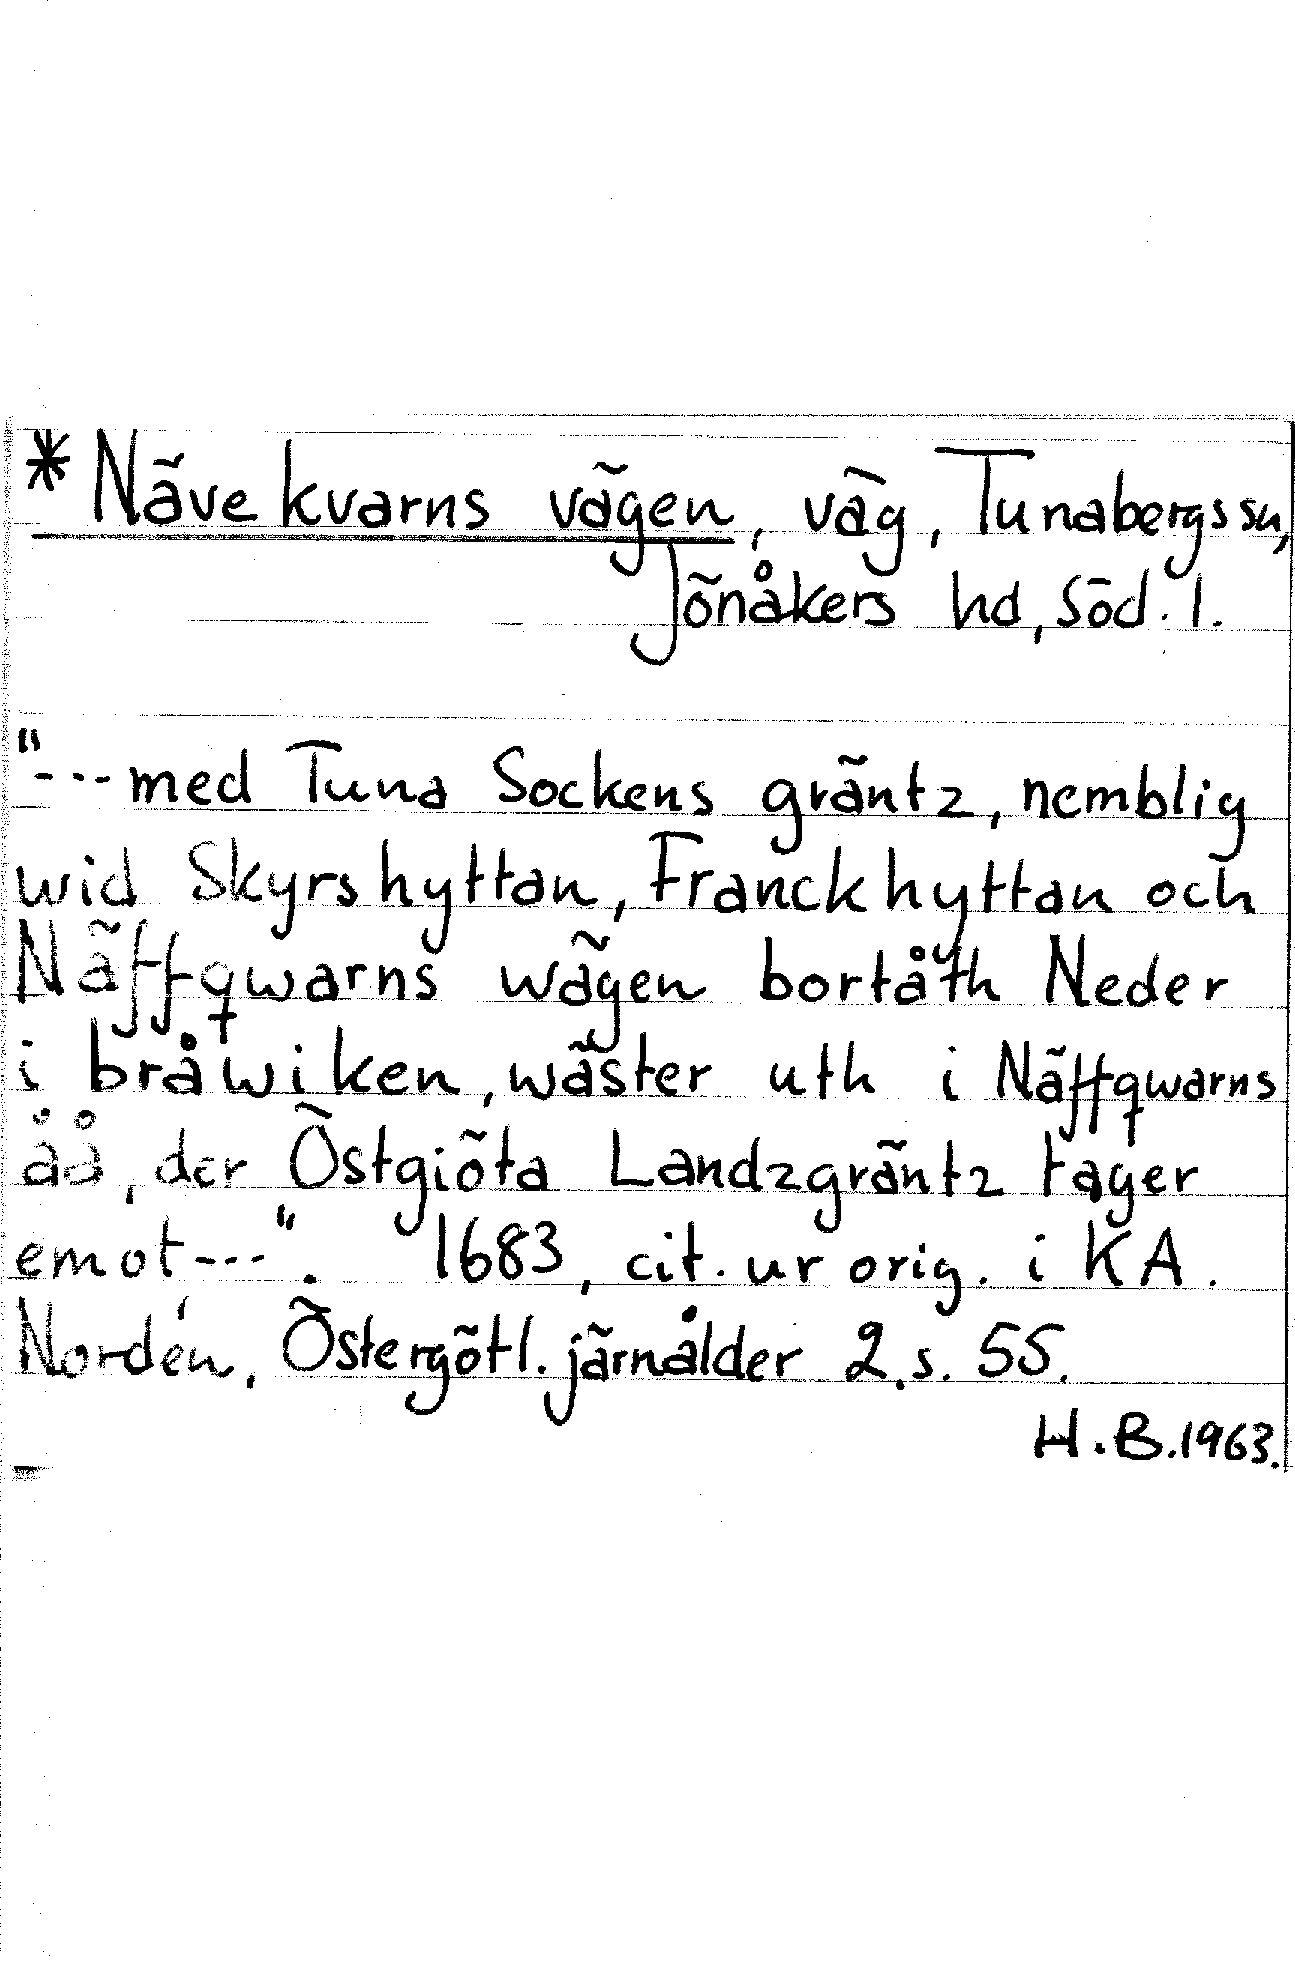 * Nävekvarns vägen, väg, Tunabergs sn,
Jönåkers hd, Söd. l.
"--- med Tuna Sockens gräntz, nemblig
wid Skyrshyttan, Franckhyttan och
Näffqwarns wägen bortåth Neder
i bråwiken, wäster uth i Näffqwarns
åå, der Östgiöta Landzgräntz tager
emot ---". 1683, cit. ur orig. i KA.
Nordén, Östergötl. järnålder 2. s. 55.
H.B. 1963.